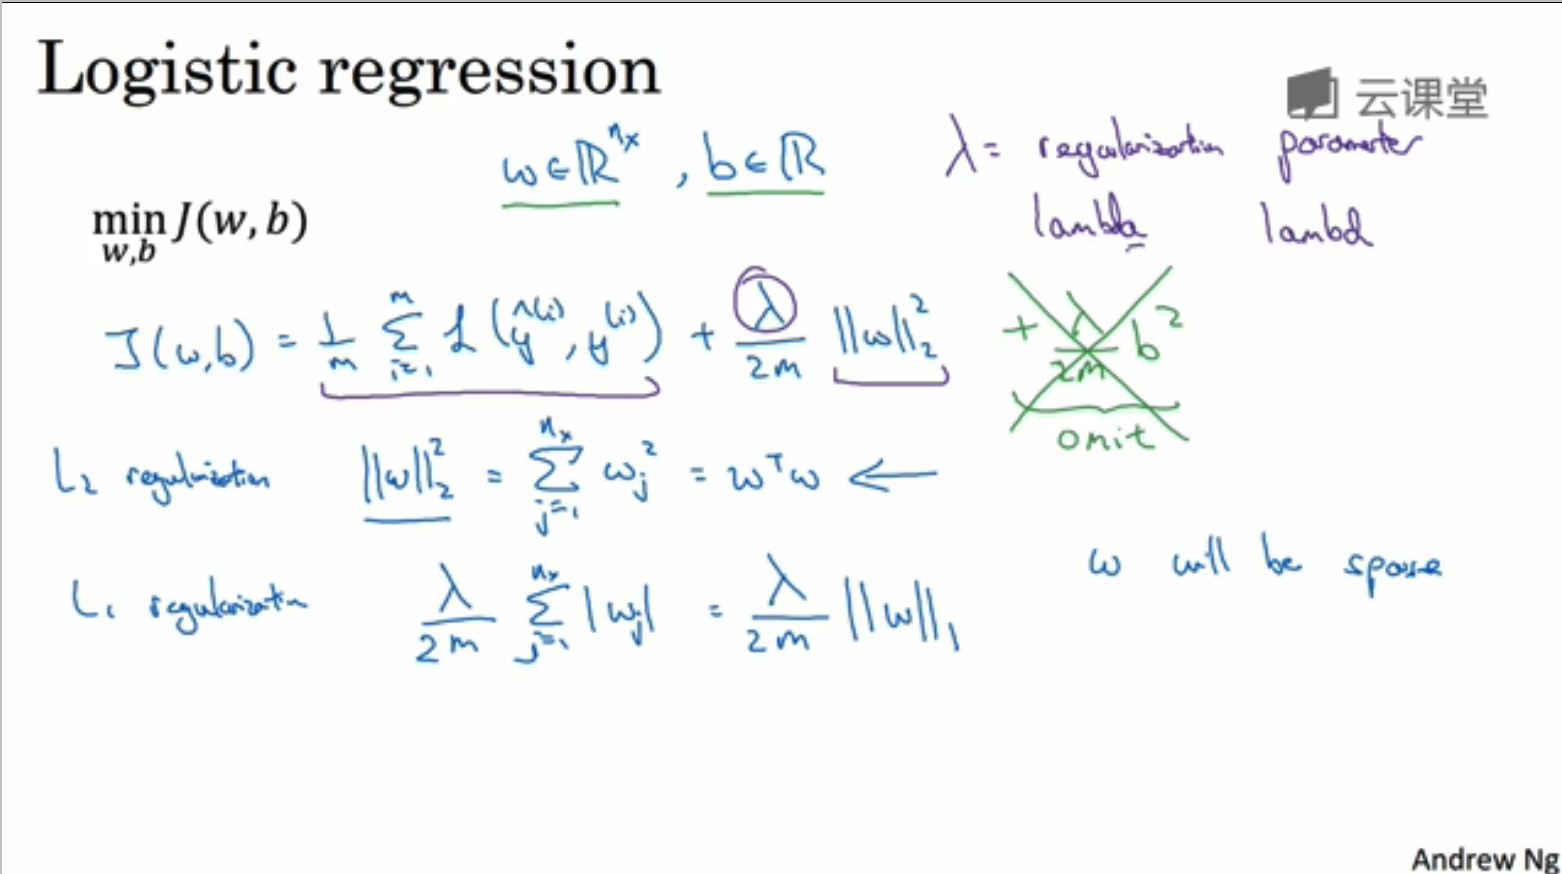 Logistic regression
云课堂
w ∈ ℝ^{n_x}, b ∈ ℝ
λ = regularization parameter
lambda lambd
min_{w,b} J(w, b)
J(w,b) = 1/m Σ_{i=1}^{m} L(ŷ^{(i)}, y^{(i)}) + λ/2m ||w||_2^2 + λ/2m b^2
omit
L_2 regularization ||w||_2^2 = Σ_{j=1}^{n_x} w_j^2 = w^T w ←
L_1 regularization λ/2m Σ_{j=1}^{n_x} |w_j| = λ/2m ||w||_1
w will be sparse
Andrew Ng